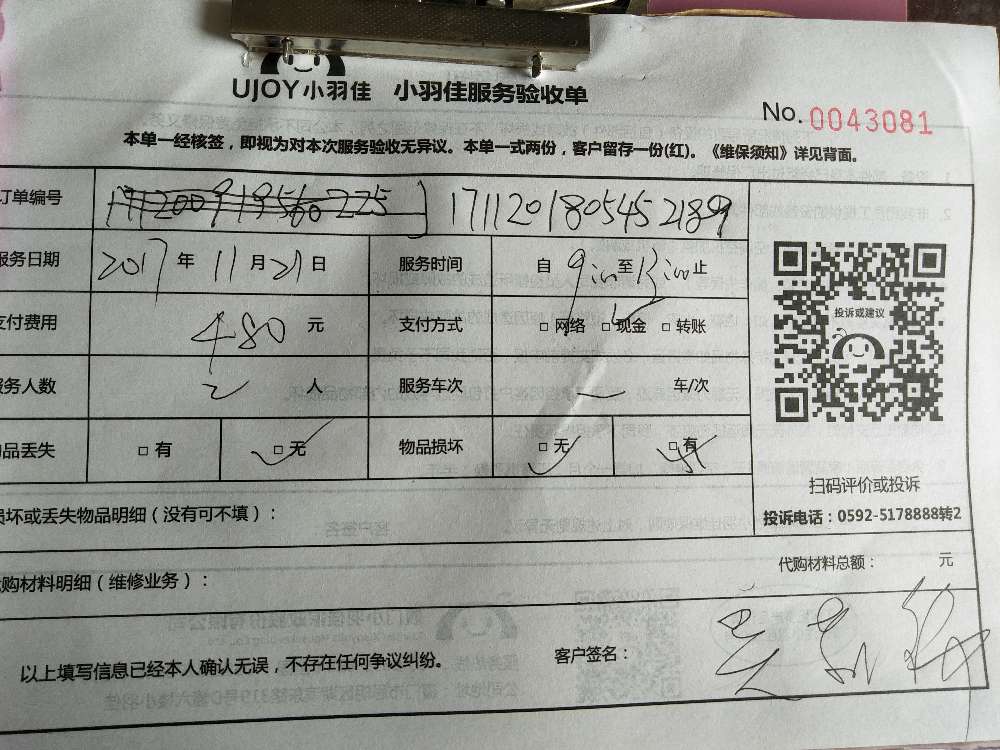 UJOY小羽佳 小羽佳服务验收单
No. 0043081
本单一经核签，即视为对本次服务验收无异议。本单一式两份，客户留存一份(红)。《维保须知》详见背面。
订单编号 171120180545 2189
服务日期 2017 年 11 月 21 日 服务时间 自 9 至 止
投诉或建议
支付费用 480 元 支付方式 □ 网络 □ 现金 □ 转账
服务人数 2 人 服务车次 车/次
物品丢失 □ 有 □ 无 物品损坏 □ 无 □ 有
扫码评价或投诉
损坏或丢失物品明细（没有可不填）：
投诉电话：0592-5178888转2
代购材料明细（维修业务）： 代购材料总额： 元
以上填写信息已经本人确认无误，不存在任何争议纠纷。 客户签名：